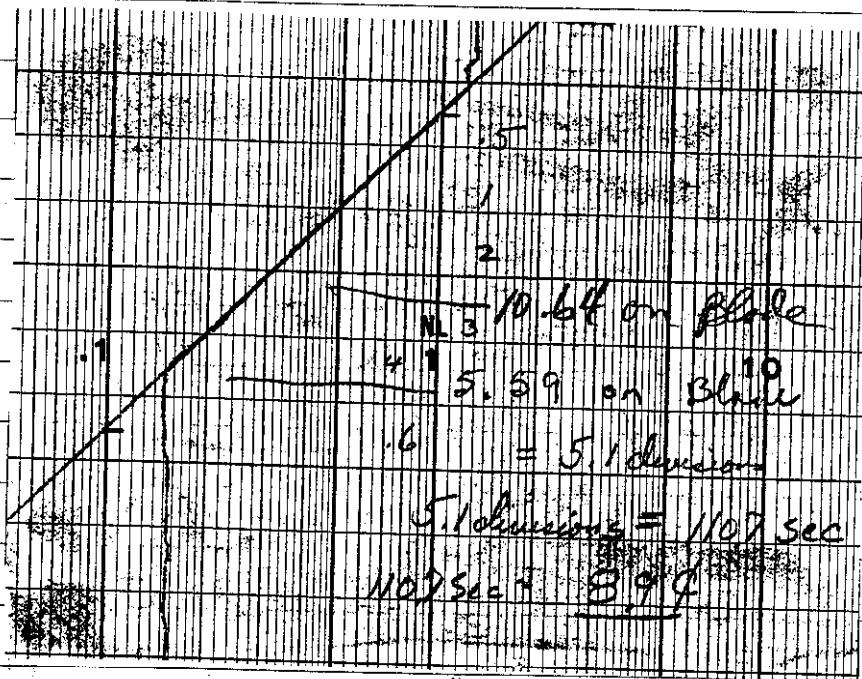 .5
1
2
10.64 on Blade
NL 3
.1 4 1 10
5.59 on Blade
.6 = 5.1 divisions
5.1 divisions = 1107 sec
1107 sec = 8.9 ¢